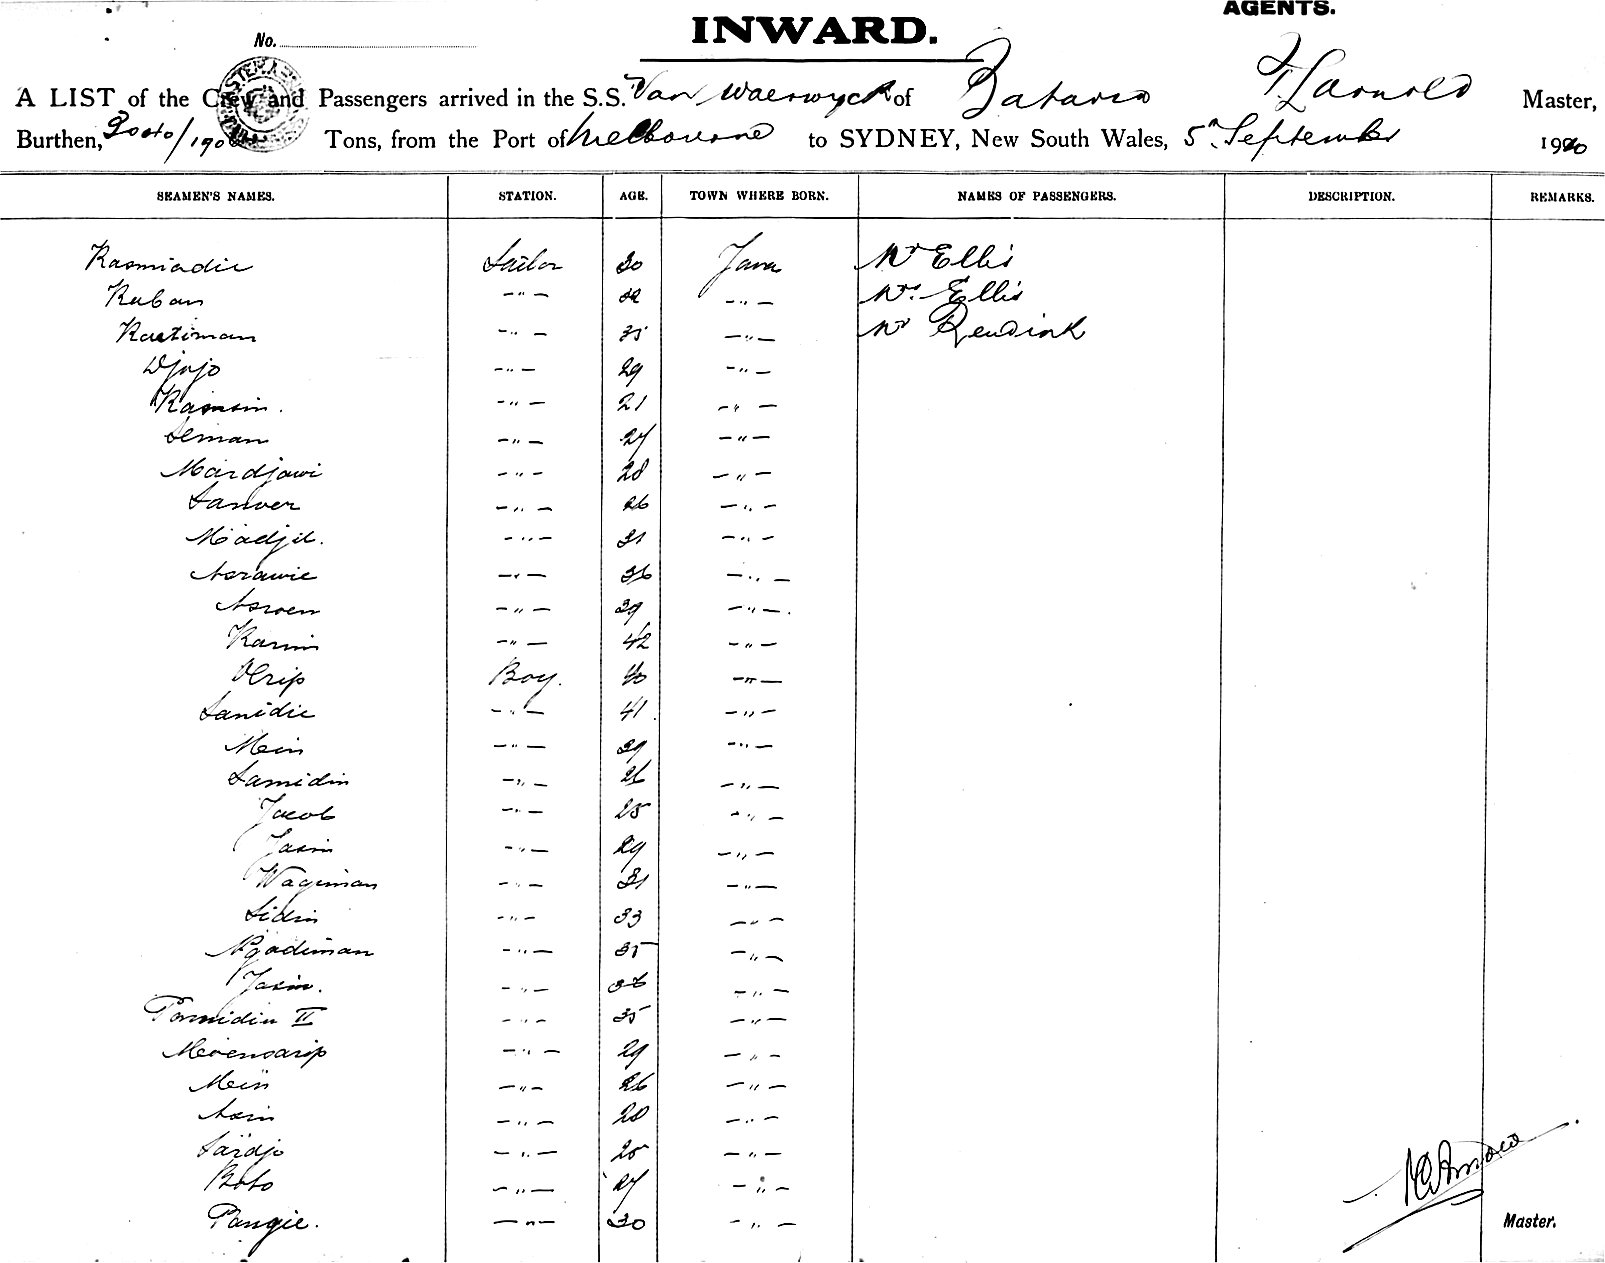 AGENTS.
INWARD.
No.
A LIST of the Crew and Passengers arrived in the S.S. Van Waerwyck of Batavia Master,
Burthen, Tons, from the Port of Melbourne to SYDNEY, New South Wales, 5th September 1900
SEAMEN'S NAMES. STATION. AGE. TOWN WHERE BORN. NAMES OF PASSENGERS. DESCRIPTION. REMARKS.
Kasmiadie Sailor 30 Java Mr Ellis
Kaban -"- 32 -"- Mrs. Ellis
Kartiman -"- 35 -"- Mr
Djojo -"- 29 -"-
Kamsin. -"- 21 -"-
Seman -"- 27 -"-
Mardjawi -"- 28 -"-
Sanoer -"- 26 -"-
Madjit. -"- 31 -"-
Asrawie -"- 36 -"-
Asroen -"- 39 -"-
Karim -"- 42 -"-
Oerip Boy. 40 -"-
Sanidie -"- 41 -"-
Mein -"- 39 -"-
Samidin -"- 26 -"-
Jacob -"- 25 -"-
Jasin -"- 29 -"-
Wagiman -"- 31 -"-
Sidin -"- 33 -"-
Ngadiman -"- 35 -"-
Jasin. -"- 36 -"-
Parmidin II -"- 35 -"-
-"- 29 -"-
Mein -"- 26 -"-
Asin -"- 28 -"-
Sardjo -"- 25 -"-
Boto -"- 27 -"-
Pangie. -"- 30 -"-
Master.